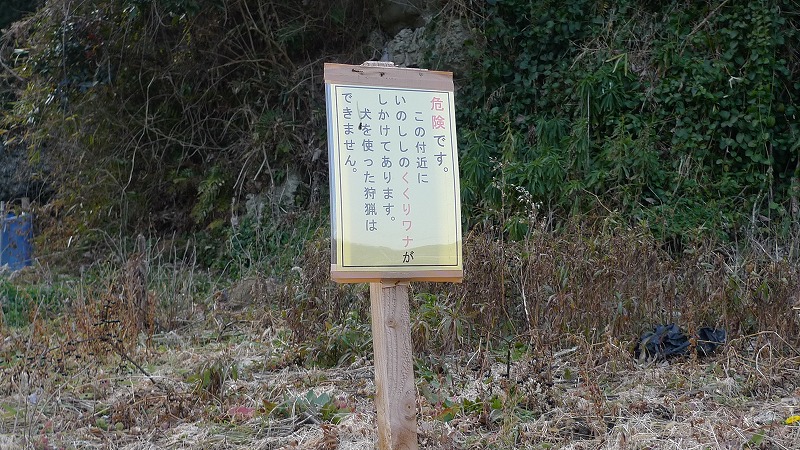 危険です。
この付近に
いのししのくくりワナが
しかけてあります。
犬を使った狩猟は
できません。